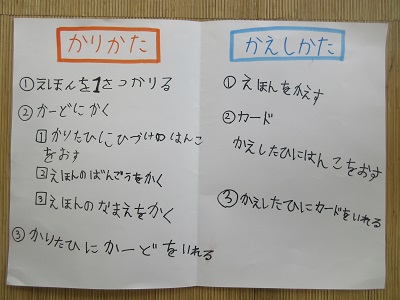 かりかた
①えほんを1さつかりる
②かーどにかく
1かりたひにひづけのはんこ
をおす
2えほんのばんごうをかく
3えほんのなまえをかく
③かりたひにかーどをいれる
かえしかた
①えほんをかえす
②カード
かえしたひにはんこをおす
③かえしたひにカードをいれる